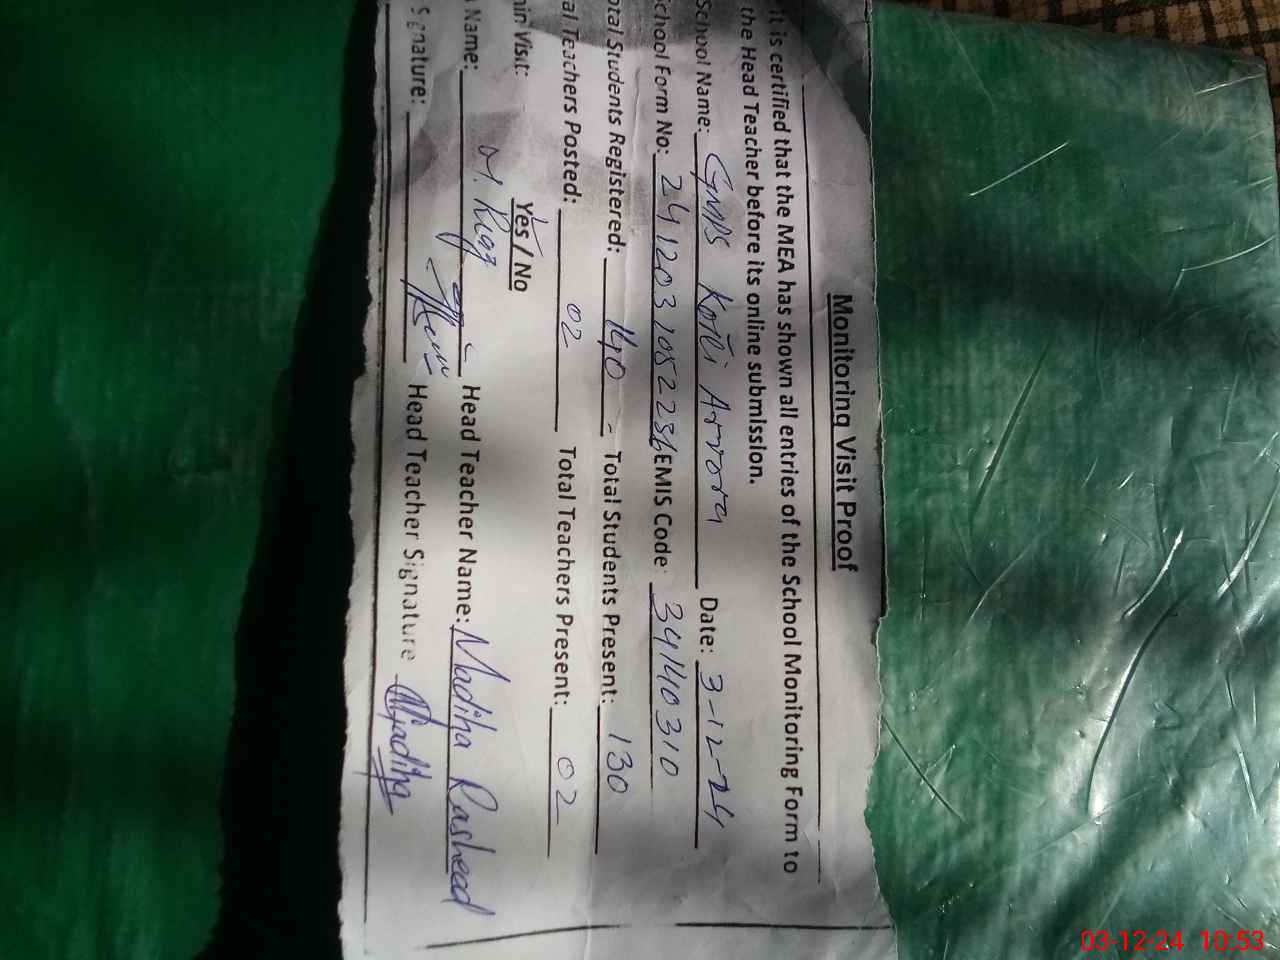 Monitoring Visit Proof
It is certified that the MEA has shown all entries of the School Monitoring Form to
the Head Teacher before its online submission.
School Name: GMPS Kotli Arvora Date: 3-12-24
School Form No: 2412031052236 EMIS Code: 34140310
otal Students Registered: 140 Total Students Present: 130
al Teachers Posted: 02 Total Teachers Present: 02
in Visit: Yes / No
Name: Head Teacher Name: Madiha Rasheed
Signature: Head Teacher Signature Madiha
03-12-24 10:53